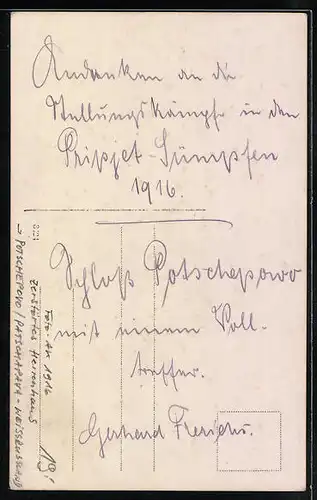 Andenken an die
Stellungskämpfe in den
Pripjet-Sümpfen
1916.
Schloß Potschepowo
mit einem Voll-
treffer.
Gerhard
Foto-AK 1916
zerstörtes Herrenhaus
→ POTSCHEPOVO / PATSCHAPAVA - WEISSRUSSLAND